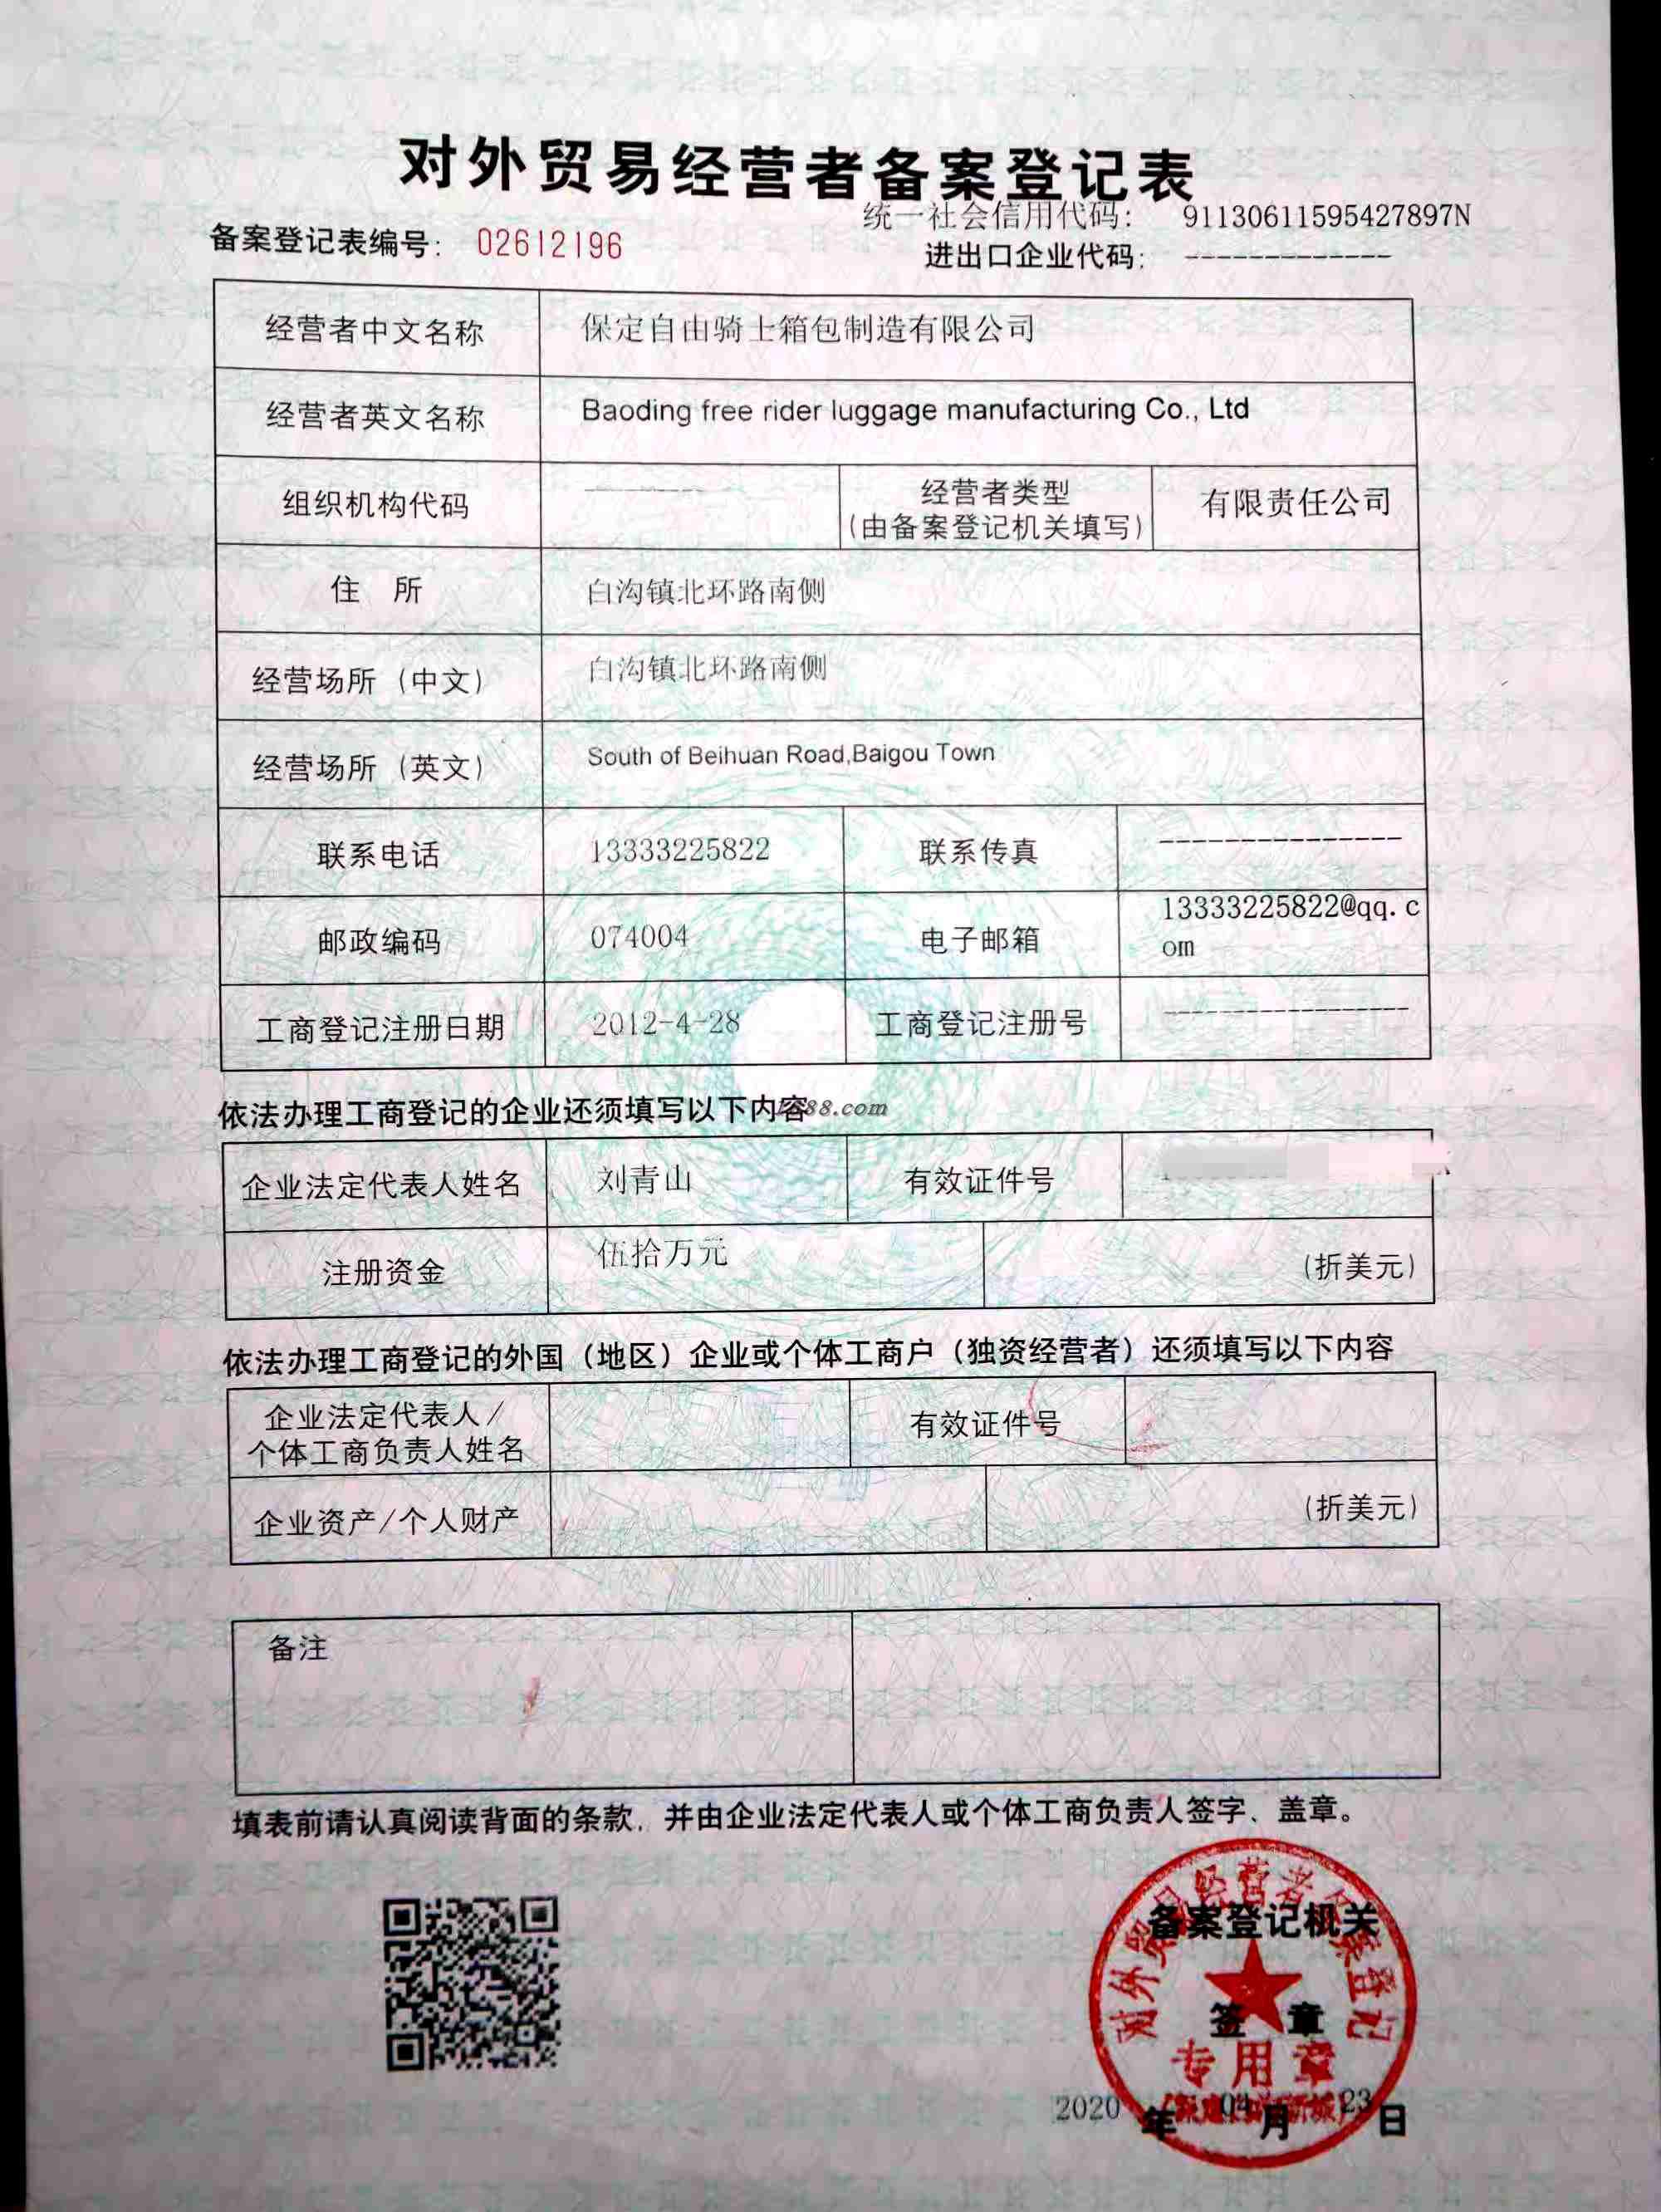 对外贸易经营者备案登记表
统一社会信用代码: 91130611595427897N
备案登记表编号: 02612196
进出口企业代码: -------------
经营者中文名称 保定自由骑士箱包制造有限公司
经营者英文名称 Baoding free rider luggage manufacturing Co., Ltd
组织机构代码 ------------- 经营者类型 (由备案登记机关填写) 有限责任公司
住 所 白沟镇北环路南侧
经营场所 (中文) 白沟镇北环路南侧
经营场所 (英文) South of Beihuan Road,Baigou Town
联系电话 13333225822 联系传真 ---------------
邮政编码 074004 电子邮箱 13333225822@qq.c
om
工商登记注册日期 2012-4-28 工商登记注册号 ---------------
依法办理工商登记的企业还须填写以下内容
88.com
企业法定代表人姓名 刘青山 有效证件号
注册资金 伍拾万元 (折美元)
依法办理工商登记的外国 (地区) 企业或个体工商户 (独资经营者) 还须填写以下内容
企业法定代表人/
个体工商负责人姓名 有效证件号
企业资产/个人财产 (折美元)
备注
填表前请认真阅读背面的条款, 并由企业法定代表人或个体工商负责人签字、盖章。
对外贸易经营者备案登记
备案登记机关
签 章
专用章
2020 年 04 月 23 日